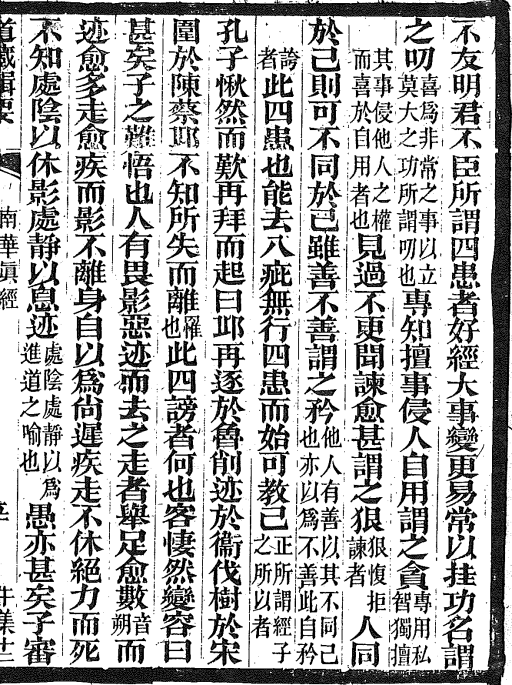 不友明君不臣所謂四患者好經大事變更易常以挂功名謂
之叨喜爲非常之事以立莫大之功所謂叨也專知擅事侵人自用謂之貪專用私智獨擅
其事侵他人之權而喜於自用者也見過不更聞諫愈甚謂之狠狠愎拒諫者人同
於己則可不同於己雖善不善謂之矜他人有善以其不同己也亦以爲不善此自矜
誇者此四患也能去八疵無行四患而始可教已正所謂經子之所以者
孔子愀然而歎再拜而起曰丘再逐於魯削迹於衞伐樹於宋
圍於陳蔡丘不知所失而離罹也此四謗者何也客悽然變容曰
甚矣子之難悟也人有畏影惡迹而去之走者舉足愈數音朔而
迹愈多走愈疾而影不離身自以爲尚遲疾走不休絕力而死
不知處陰以休影處靜以息迹處陰處靜以爲進道之喻也愚亦甚矣子審
道藏輯要 南華眞經 牛集十二